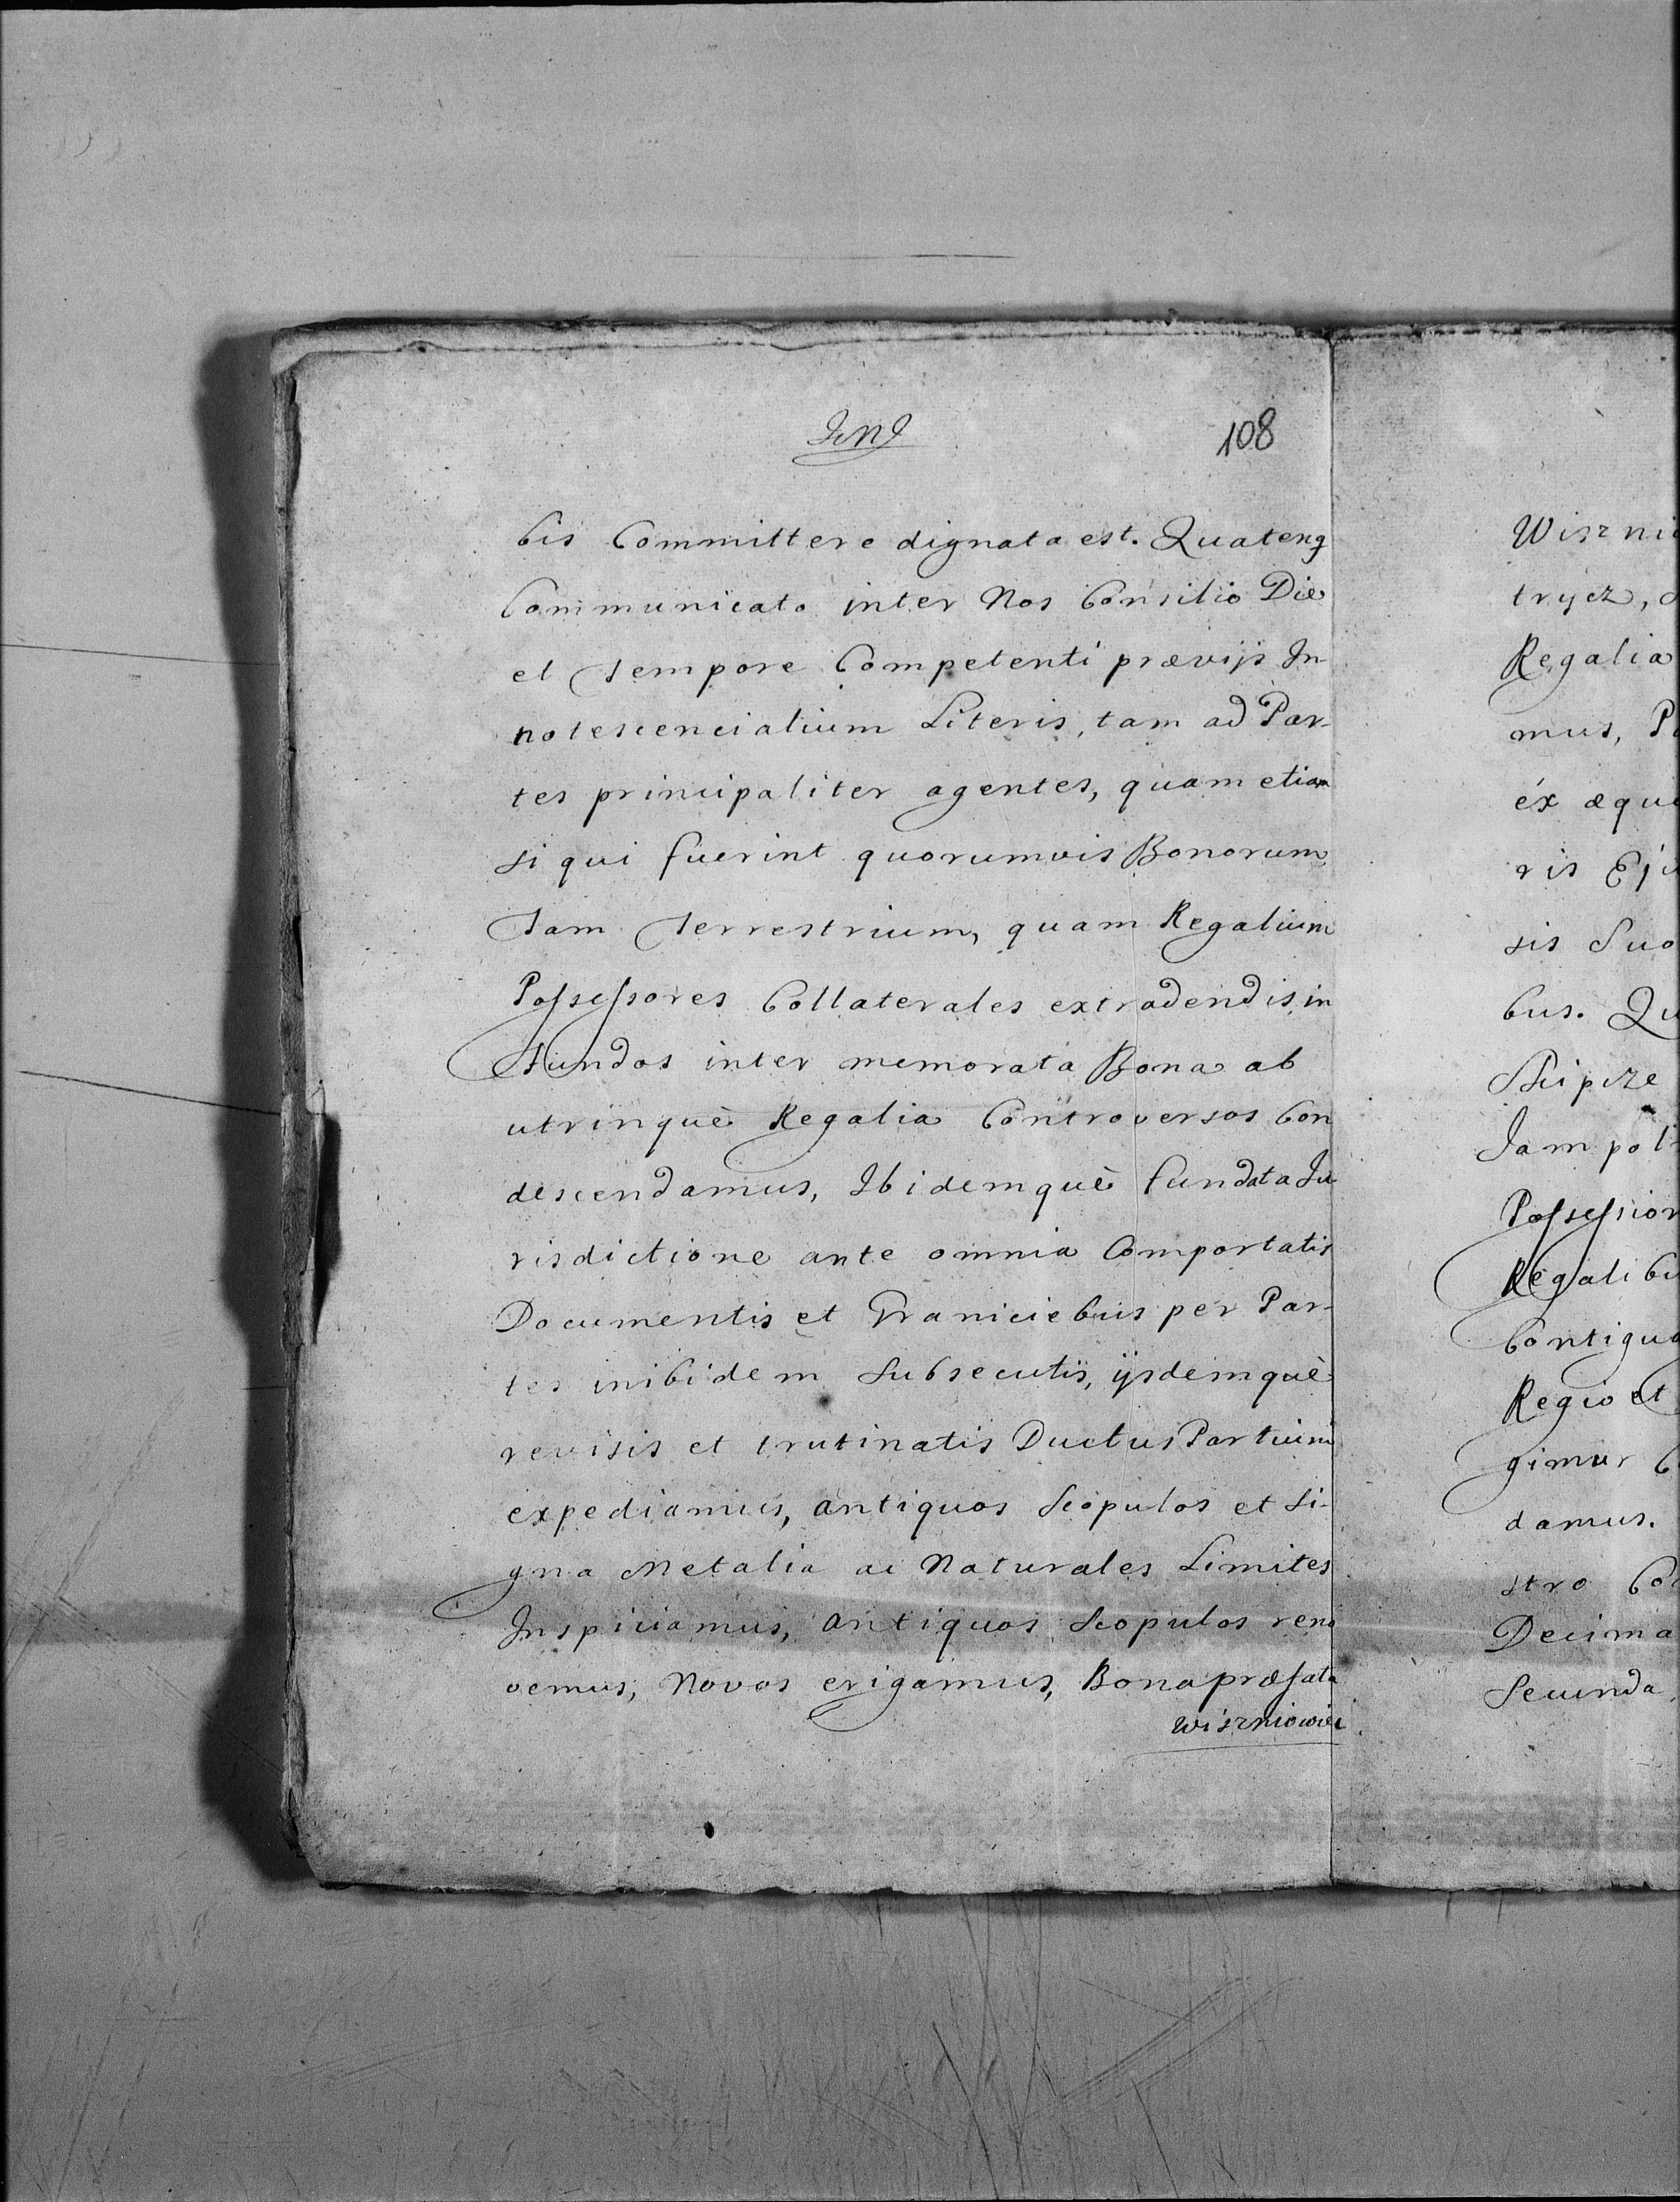 108
bis Committere dignata est. Quatenq
Communicato inter Nos Consilio Die
et tempore Competenti prævijs In-
notescencialium Literis, tam ad Par-
tes principaliter agentes, quam etiam
si qui fuerint quorumvis Bonorum
tam terrestrium, quam Regalium
Possessores Collaterales extradendis, in
Fundos inter memorata Bona ab
utrinquè Regalia Controversos Con
descendamus, Ibidemquè fundata Ju
risdictione ante omnia Comportatis
Documentis et Graniciebus per Par-
tes inibidem Subsecutis, ijsdemquè
revisis et trutinatis Ductus Partium
expediamus, antiquos Scopulos et Si-
gna Metalia ac Naturales Limites
Inspiciamus, antiquos Scopulos reno
vemus, Novos erigamus, Bona præfata
Wiszniowiec
Wiszni
trycz,
Regalia
mus, P
éx æqu
ris Eju
sis Suo
bus. Qu
Scipcze
Jampol
Possession
Regalibu
Contigua
Regio et
gimur
damus.
stro Co
Decima
Secunda